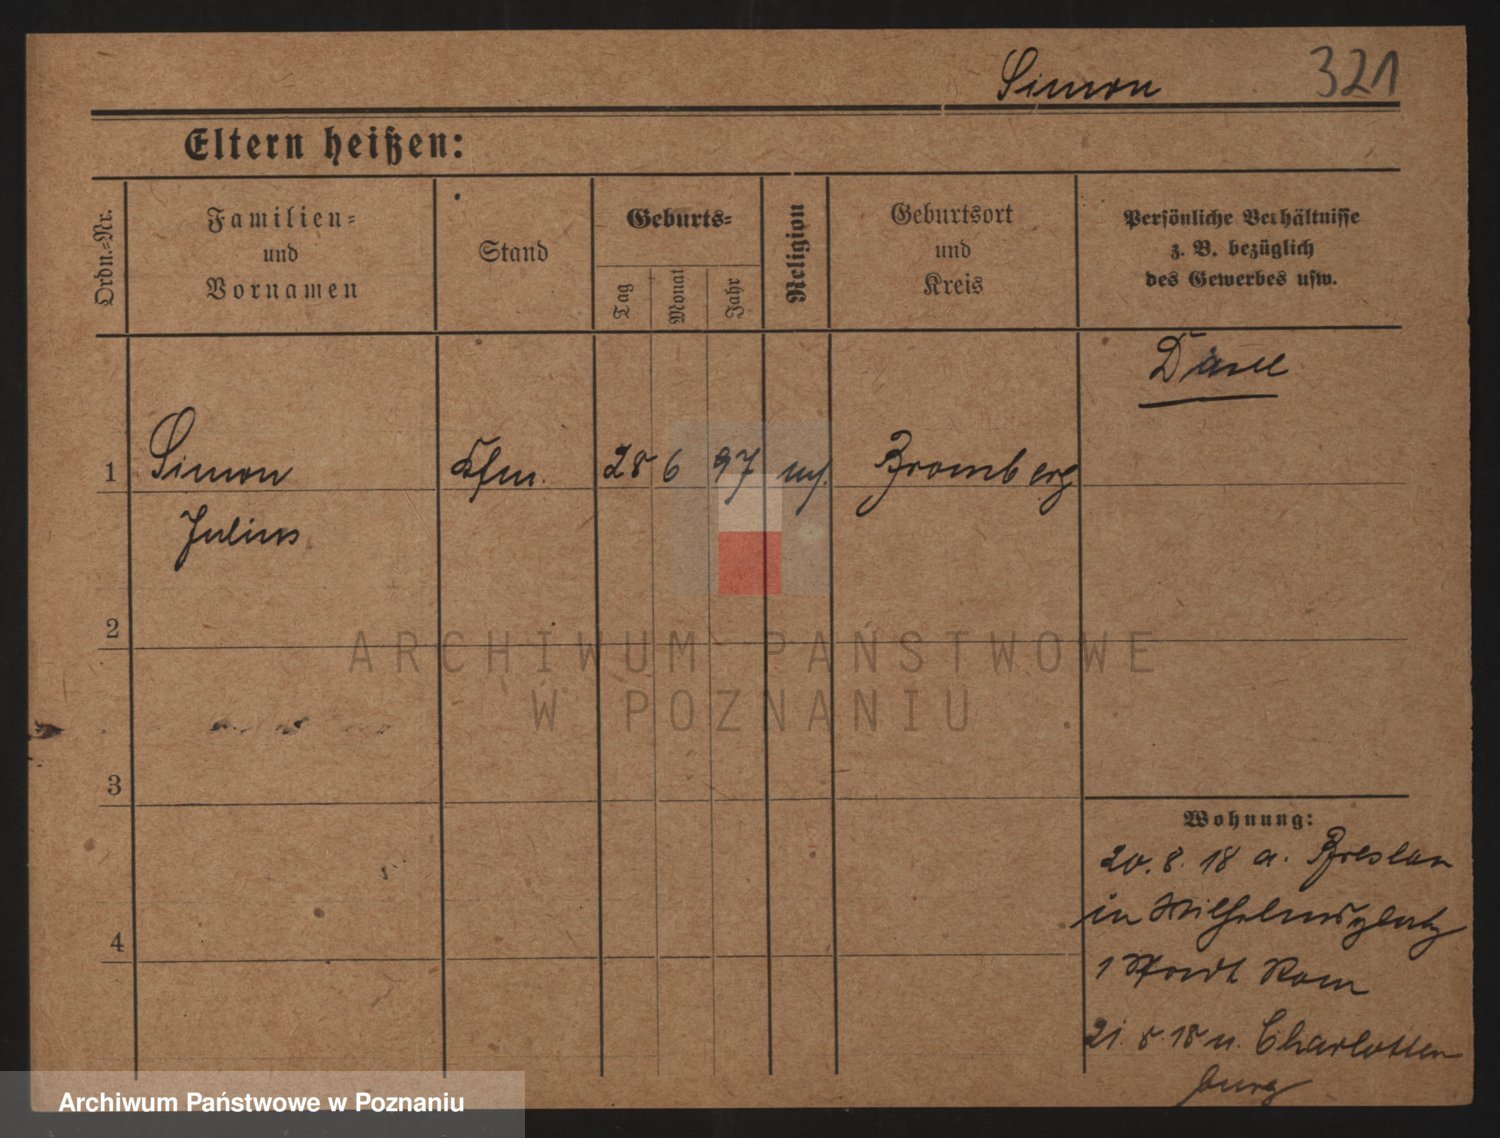 Simon 321
Eltern heißen:
Ordn.-Nr.
Familien-
und
Vornamen
Stand
Geburts-
Tag
Monat
Jahr
Religion
Geburtsort
und
Kreis
Persönliche Verhältnisse
z. B. bezüglich
des Gewerbes usw.
1 Simon Kfm. 28 6 97 Bromberg
Julius
2
3
4
Wohnung:
20. 8. 18 a. Breslau
in Wilhelmsplatz
1 Rom
21. 8. 18 n. Charlotten
burg
ARCHIWUM PAŃSTWOWE
W POZNANIU
Archiwum Państwowe w Poznaniu